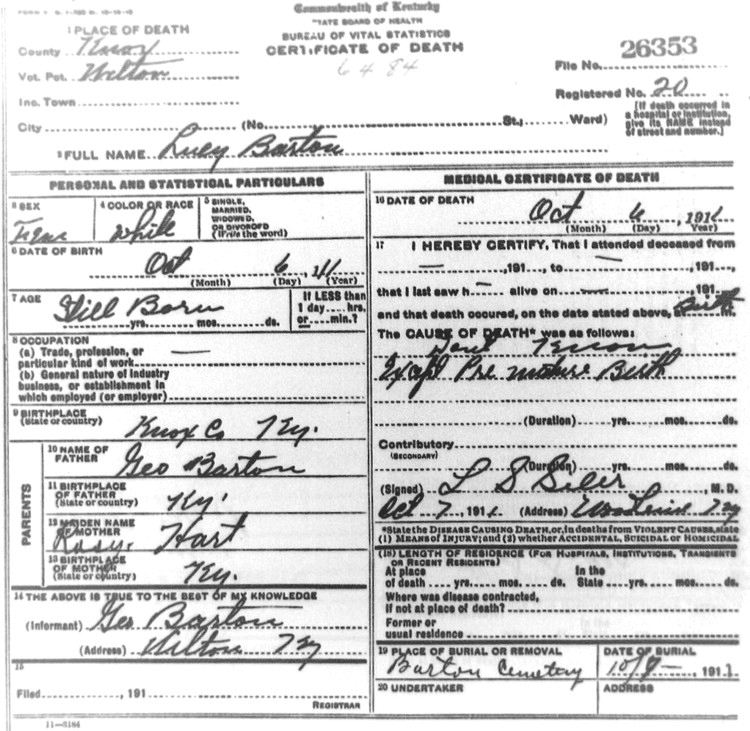 Commonwealth of Kentucky
STATE BOARD OF HEALTH
BUREAU OF VITAL STATISTICS
CERTIFICATE OF DEATH
6484
1 PLACE OF DEATH
County Knox
Vot. Pct. Wilton
Inc. Town
City (No. St.; Ward)
File No. 26353
Registered No. 20
[If death occurred in
a hospital or institution,
give its NAME instead
of street and number.]
2 FULL NAME Lucy Barton
PERSONAL AND STATISTICAL PARTICULARS
3 SEX
4 COLOR OR RACE White
5 SINGLE,
MARRIED,
WIDOWED,
OR DIVORCED
(Write the word)
6 DATE OF BIRTH
Oct 6, 11
(Month) (Day) (Year)
7 AGE Still Born
yrs. mos. ds.
If LESS than
1 day hrs.
or min.?
8 OCCUPATION
(a) Trade, profession, or
particular kind of work —
(b) General nature of industry
business, or establishment in
which employed (or employer)
9 BIRTHPLACE
(State or country) Knox Co Ky.
PARENTS
10 NAME OF
FATHER Geo Barton
11 BIRTHPLACE
OF FATHER
(State or country) Ky.
12 MAIDEN NAME
OF MOTHER Rosy Hart
13 BIRTHPLACE
OF MOTHER
(State or country) Ky.
14 THE ABOVE IS TRUE TO THE BEST OF MY KNOWLEDGE
(Informant) Geo Barton
(Address) Wilton Ky
15
Filed , 191
REGISTRAR
11—3184
MEDICAL CERTIFICATE OF DEATH
16 DATE OF DEATH
Oct 6, 1911
(Month) (Day) (Year)
17 I HEREBY CERTIFY, That I attended deceased from
— , 191 , to — , 191 ,
that I last saw h alive on — , 191 ,
and that death occured, on the date stated above, at Birth m.
The CAUSE OF DEATH* was as follows:
Dont Know
Except Premature Birth
(Duration) yrs. mos. ds.
Contributory
(SECONDARY)
(Duration) yrs. mos. ds.
(Signed) L S , M. D.
Oct 7, 191 (Address) Ky
*State the DISEASE CAUSING DEATH, or, in deaths from VIOLENT CAUSES, state
(1) MEANS OF INJURY; and (2) whether ACCIDENTAL, SUICIDAL or HOMICIDAL
(18) LENGTH OF RESIDENCE (FOR HOSPITALS, INSTITUTIONS, TRANSIENTS
OR RECENT RESIDENTS)
At place In the
of death yrs. mos. ds. State yrs. mos. ds.
Where was disease contracted,
if not at place of death?
Former or
usual residence
19 PLACE OF BURIAL OR REMOVAL
Barton Cemetery
DATE OF BURIAL
191
20 UNDERTAKER
ADDRESS